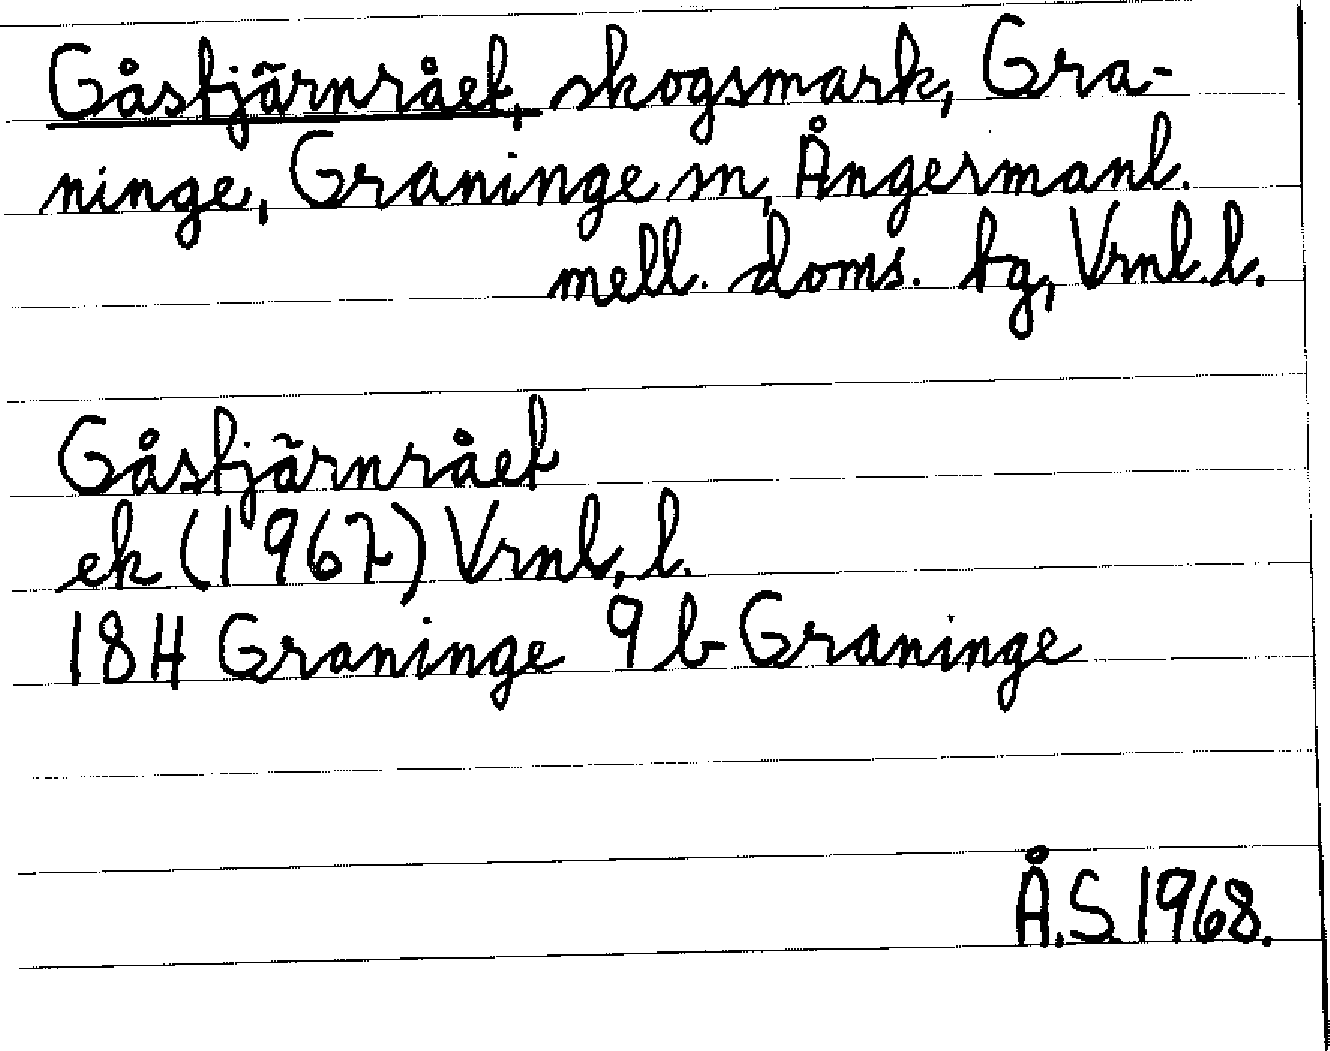 Gåstjärnrået, skogsmark, Gra-
ninge, Graninge sn, Ångermanl.
mell. doms. tg, Vrnl. l.
Gåstjärnrået
ek (1967) Vrnl. l.
18H Graninge 9b Graninge
Å.S. 1968.